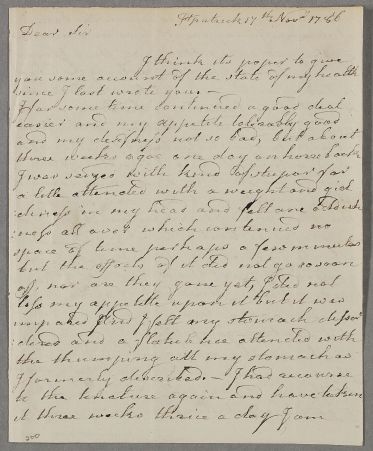 Kpatrick 17th Novr 1786
Dear Sir
I think its proper to give
you some account of the state of my health
since I last wrote you. —
I for some time continued a good deal
easier and my appetite tolerably good
and my deafness not so bad, but about
three weeks agoe one day on horse back
I was seized with a kind of stupor for
a little attended with a weight and gid
diness in my head and felt
ness all over which continued no
space of time perhaps a few minutes
but the effects of it did not go so soon
off, nor are they gone yet, I did not
loss my appetite upon it but it was
impaired and I felt my stomach disor
dered and a flatulence attended with
the thumping att my stomach as
I formerly described. — I had recourse
to the tincture again and have taken
it three weeks thrice a day I am